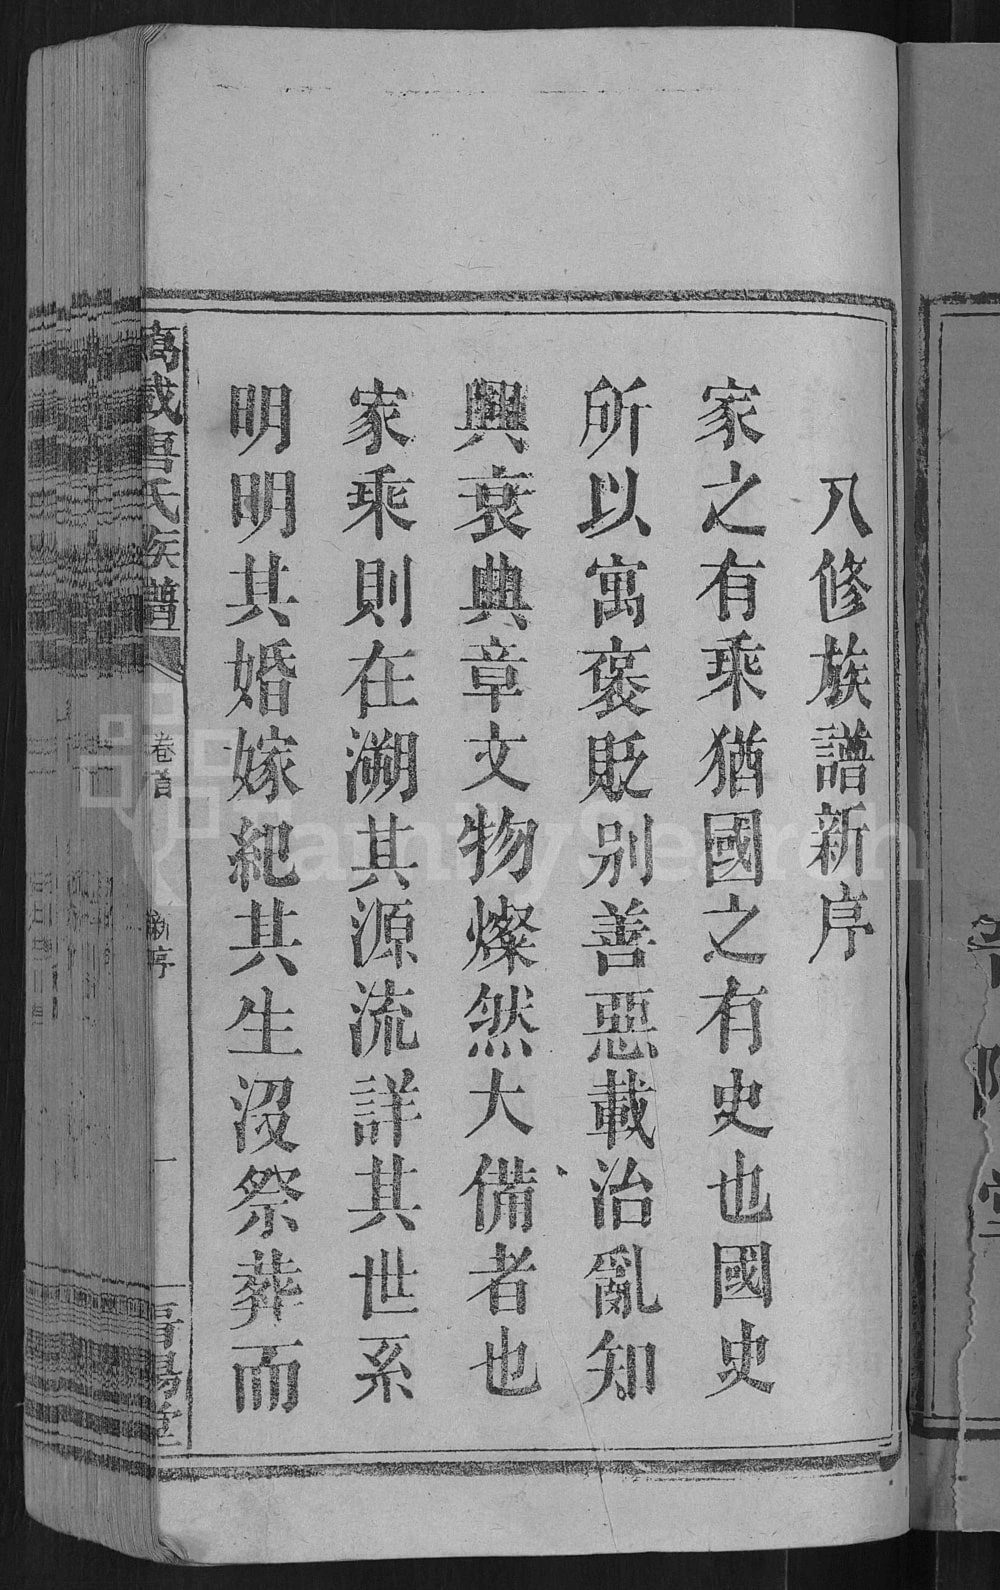 八修族譜新序
家之有乘猶國之有史也國史
所以寓褒貶别善惡載治亂知
興衰典章文物燦然大備者也
家乘則在溯其源流詳其世系
明明其婚嫁紀其生沒祭葬而
氏族譜
卷首
新序
一
晋陽堂
FamilySearch